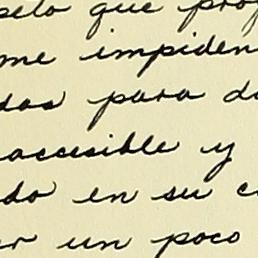 pelo que prof
me impiden
das para da
accesible y
do en su c
er un poco